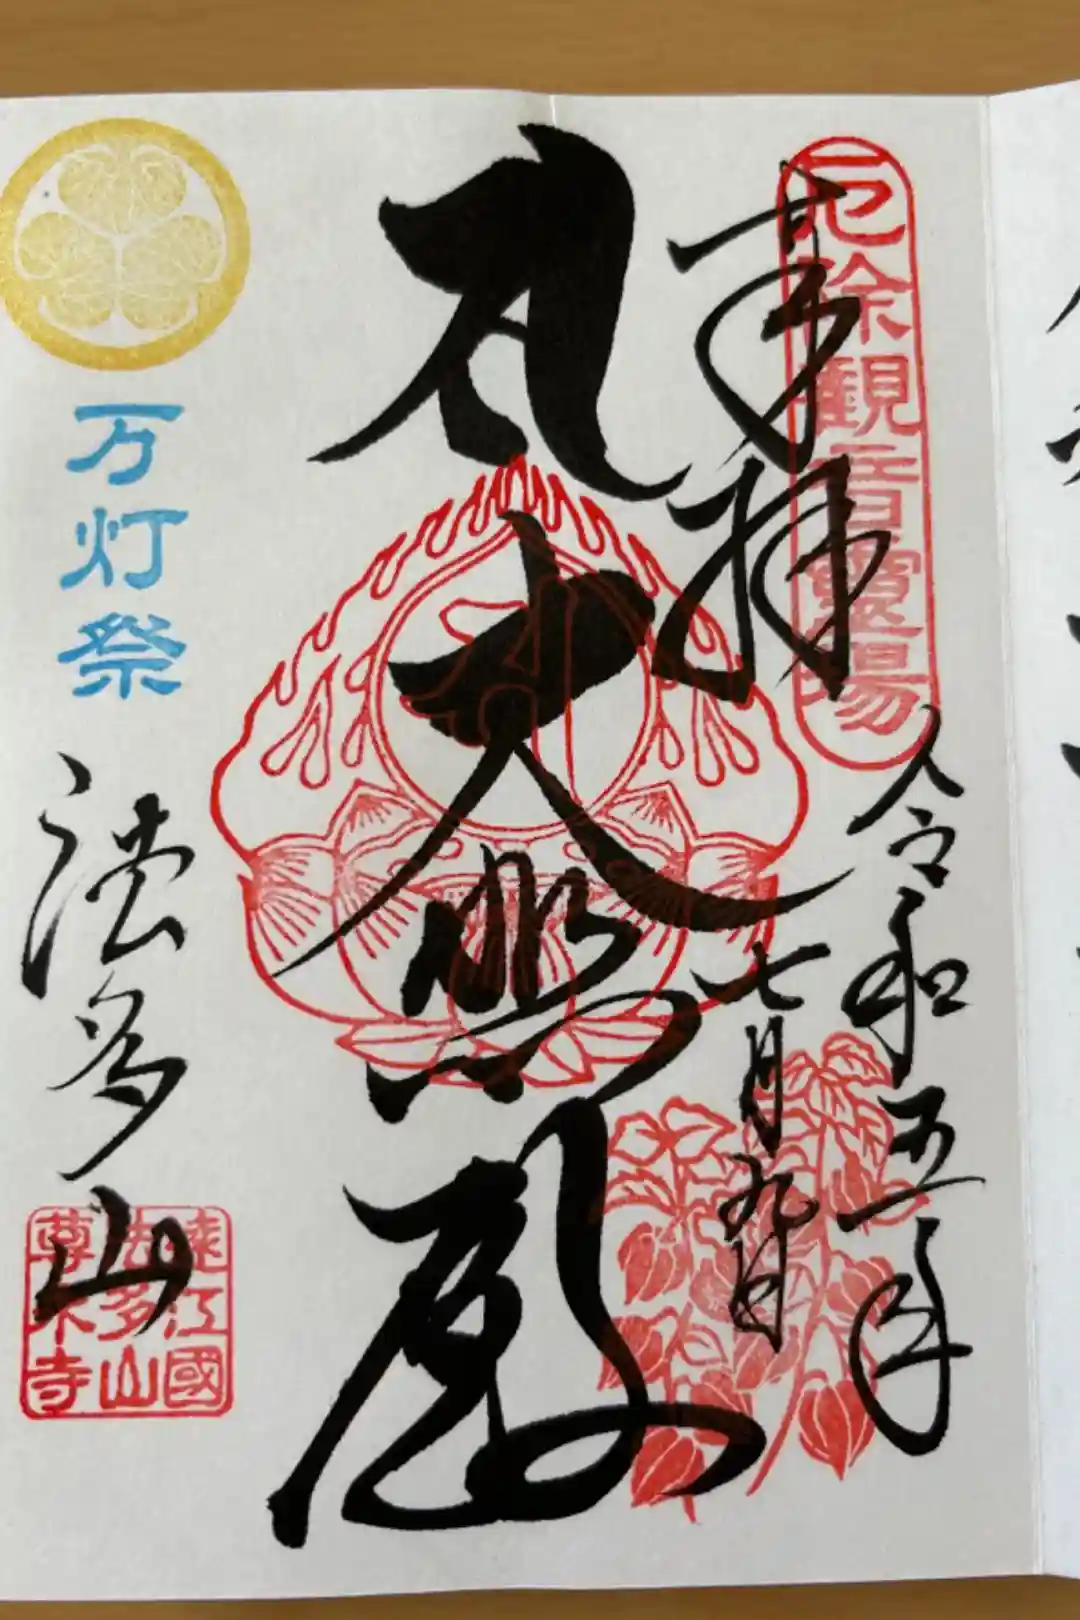 厄除観音靈場
奉拝
令和五年
七月九日
大悲殿
万灯祭
法多山
遠江國
法多山
尊永寺